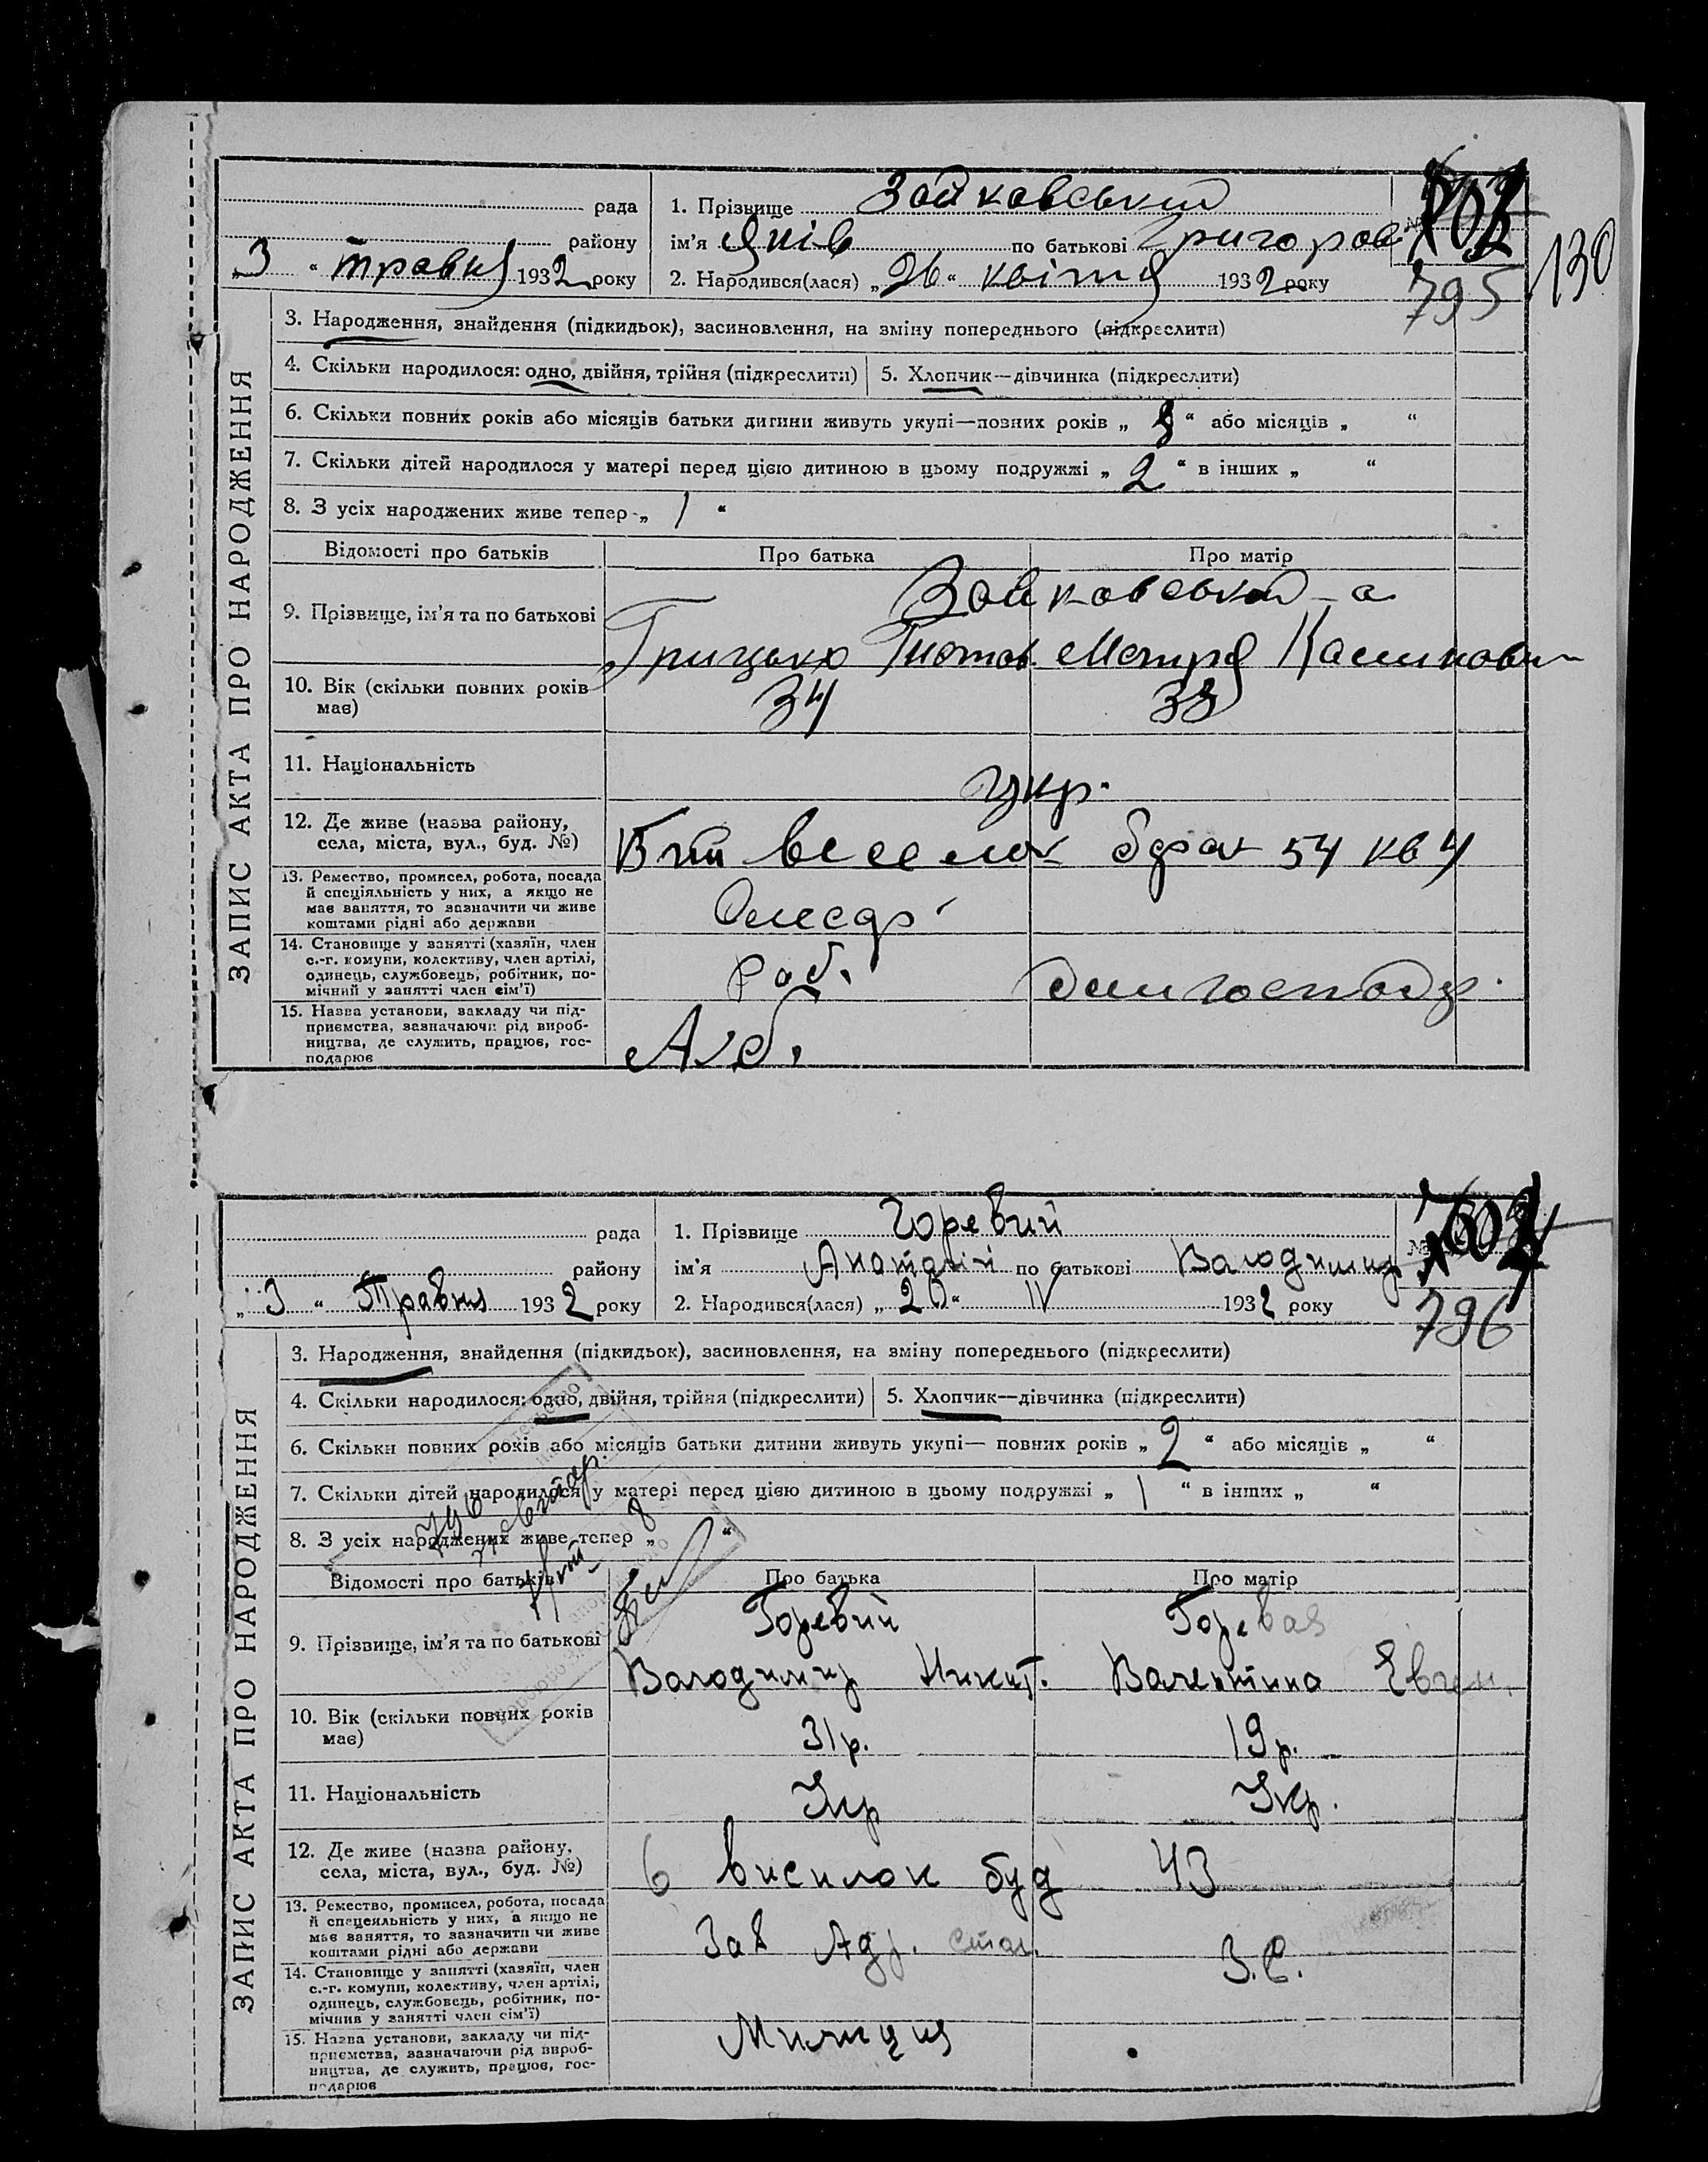 рада
району
„3“ травня 1932 року
1. Прізвище Зайковський
ім'я Яків по батькові Григоров
2. Народився(лася) „26“ квітня 1932 року
№
795
130
ЗАПИС АКТА ПРО НАРОДЖЕННЯ
3. Народження, знайдення (підкидьок), засиновлення, на зміну попереднього (підкреслити)
4. Скільки народилося: одно, двійня, трійня (підкреслити)
5. Хлопчик—дівчинка (підкреслити)
6. Скільки повних років або місяців батьки дитини живуть укупі—повних років „ “ або місяців „ “
7. Скільки дітей народилося у матері перед цією дитиною в цьому подружжі „2“ в інших „ “
8. З усіх народжених живе тепер „1“
Відомості про батьків
Про батька
Про матір
9. Прізвище, ім'я та по батькові
Зайковський-а
Грицько
Мотря
10. Вік (скільки повних років має)
34
33
11. Національність
укр.
12. Де живе (назва району, села, міста, вул., буд. №)
54 кв 4
13. Ремество, промисел, робота, посада й спеціяльність у них, а якщо не має заняття, то зазначити чи живе коштами рідні або держави
14. Становище у занятті (хазяїн, член с.-г. комуни, колективу, член артілі, одинець, службовець, робітник, помічний у занятті член сім'ї)
роб.
дом господ.
15. Назва установи, закладу чи підприємства, зазначаючи рід виробництва, де служить, працює, господарює
рада
району
„3“ Травня 1932 року
1. Прізвище Горевий
ім'я Анатолій по батькові Володимир
2. Народився(лася) „20“ IV 1932 року
№
796
ЗАПИС АКТА ПРО НАРОДЖЕННЯ
3. Народження, знайдення (підкидьок), засиновлення, на зміну попереднього (підкреслити)
4. Скільки народилося: одно, двійня, трійня (підкреслити)
5. Хлопчик—дівчинка (підкреслити)
6. Скільки повних років або місяців батьки дитини живуть укупі— повних років „2“ або місяців „ “
7. Скільки дітей народилося у матері перед цією дитиною в цьому подружжі „1“ в інших „ “
8. З усіх народжених живе тепер „ “
Відомості про батьків
Про батька
Про матір
9. Прізвище, ім'я та по батькові
Горевий
Горевая
Володимир Никит.
Валентина Євген.
10. Вік (скільки повних років має)
31р.
19р.
11. Національність
Укр
Укр.
12. Де живе (назва району, села, міста, вул., буд. №)
6 висилок буд 43
13. Ремество, промисел, робота, посада й спецеяльність у них, а якщо не має заняття, то зазначити чи живе коштами рідні або держави
Зав
З.С.
14. Становище у занятті (хазяїн, член с.-г. комуни, колективу, член артілі, одинець, службовець, робітник, помічнив у занятті член сім'ї)
15. Назва установи, закладу чи підприємства, зазначаючи рід виробництва, де служить, працює, господарює
Милиция